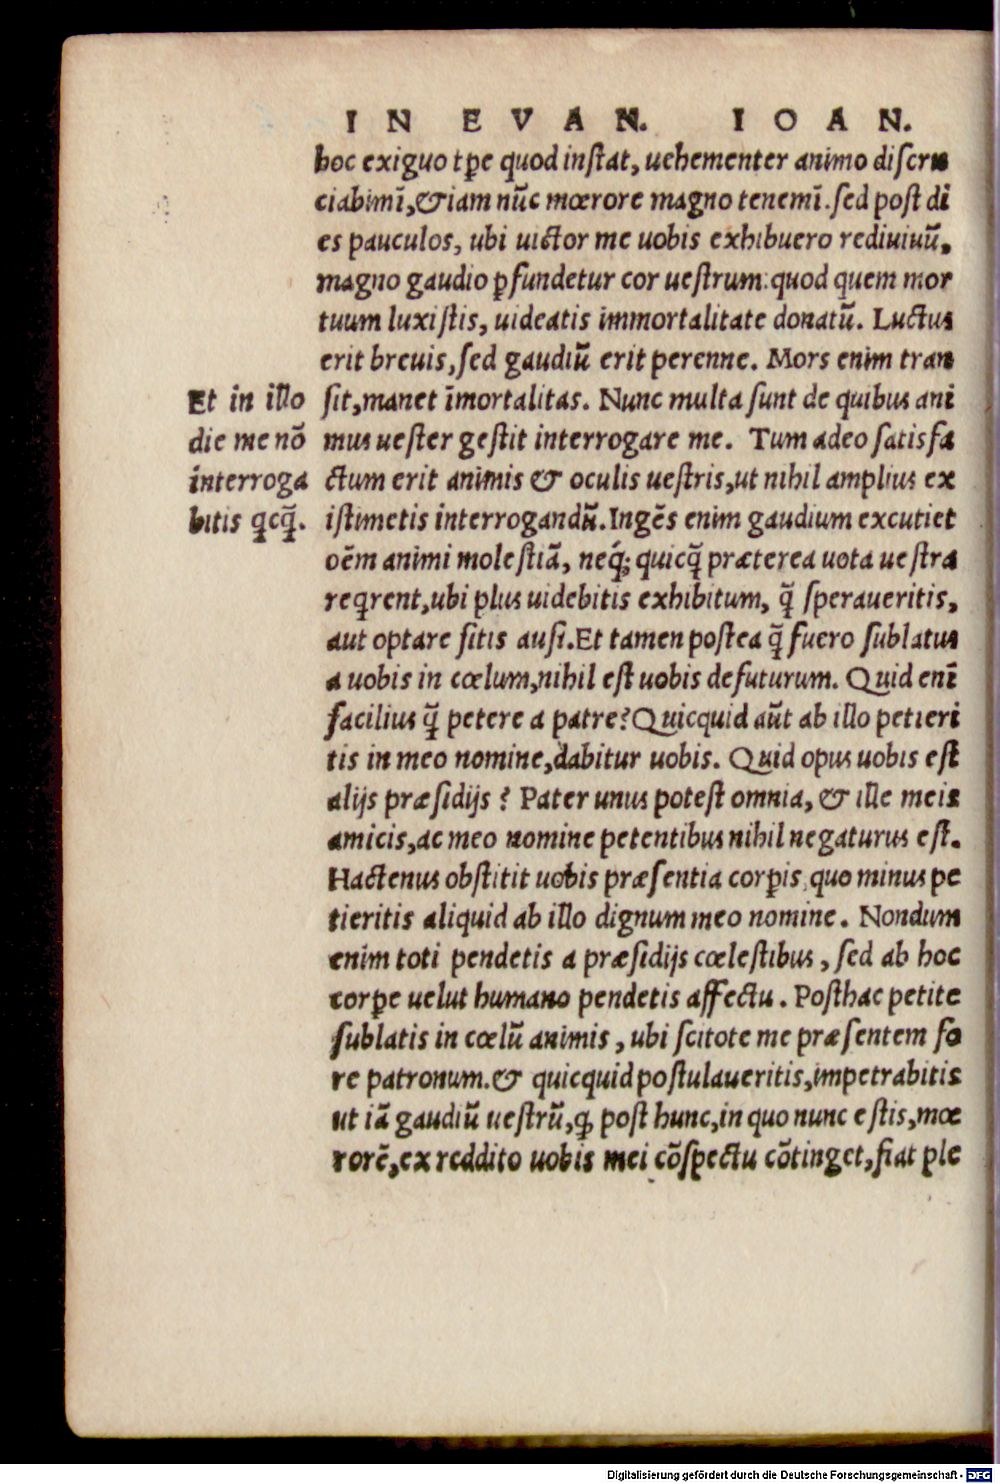 IN EVAN. IOAN.
hoc exiguo tꝑe quod instat, uehementer animo discru
ciabimĩ, & iam nũc mœrore magno tenemĩ. sed post di
es pauculos, ubi uictor me uobis exhibuero rediuiuũ,
magno gaudio ꝑfundetur cor uestrum: quod quem mor
tuum luxistis, uideatis immortalitate donatũ. Luctus
erit breuis, sed gaudiũ erit perenne. Mors enim tran
sit, manet ĩmortalitas. Nunc multa sunt de quibus ani
mus uester gestit interrogare me. Tum adeo satisfa
ctum erit animis & oculis uestris, ut nihil amplius ex
istimetis interrogandũ. Ingẽs enim gaudium excutiet
oẽm animi molestiã, neq́; quicq̃ præterea uota uestra
reqrent, ubi plus uidebitis exhibitum, q̃ speraueritis,
aut optare sitis ausi. Et tamen postea q̃ fuero sublatus
a uobis in cœlum, nihil est uobis defuturum. Quid enĩ
facilius q̃ petere a patre? Quicquid aũt ab illo petieri
tis in meo nomine, dabitur uobis. Quid opus uobis est
alijs præsidijs? Pater unus potest omnia, & ille meis
amicis, ac meo nomine petentibus nihil negaturus est.
Hactenus obstitit uobis præsentia corꝑis, quo minus pe
tieritis aliquid ab illo dignum meo nomine. Nondum
enim toti pendetis a præsidijs cœlestibus, sed ab hoc
corꝑe uelut humano pendetis affectu. Posthac petite
sublatis in cœlũ animis, ubi scitote me præsentem fo
re patronum. & quicquid postulaueritis, impetrabitis
ut iã gaudiũ uestrũ, ꝗ post hunc, in quo nunc estis, mœ
rorẽ, ex reddito uobis mei cõspectu cõtinget, fiat ple
Et in illo
die me nõ
interroga
bitis qcq̃.
Digitalisierung gefördert durch die Deutsche Forschungsgemeinschaft - DFG